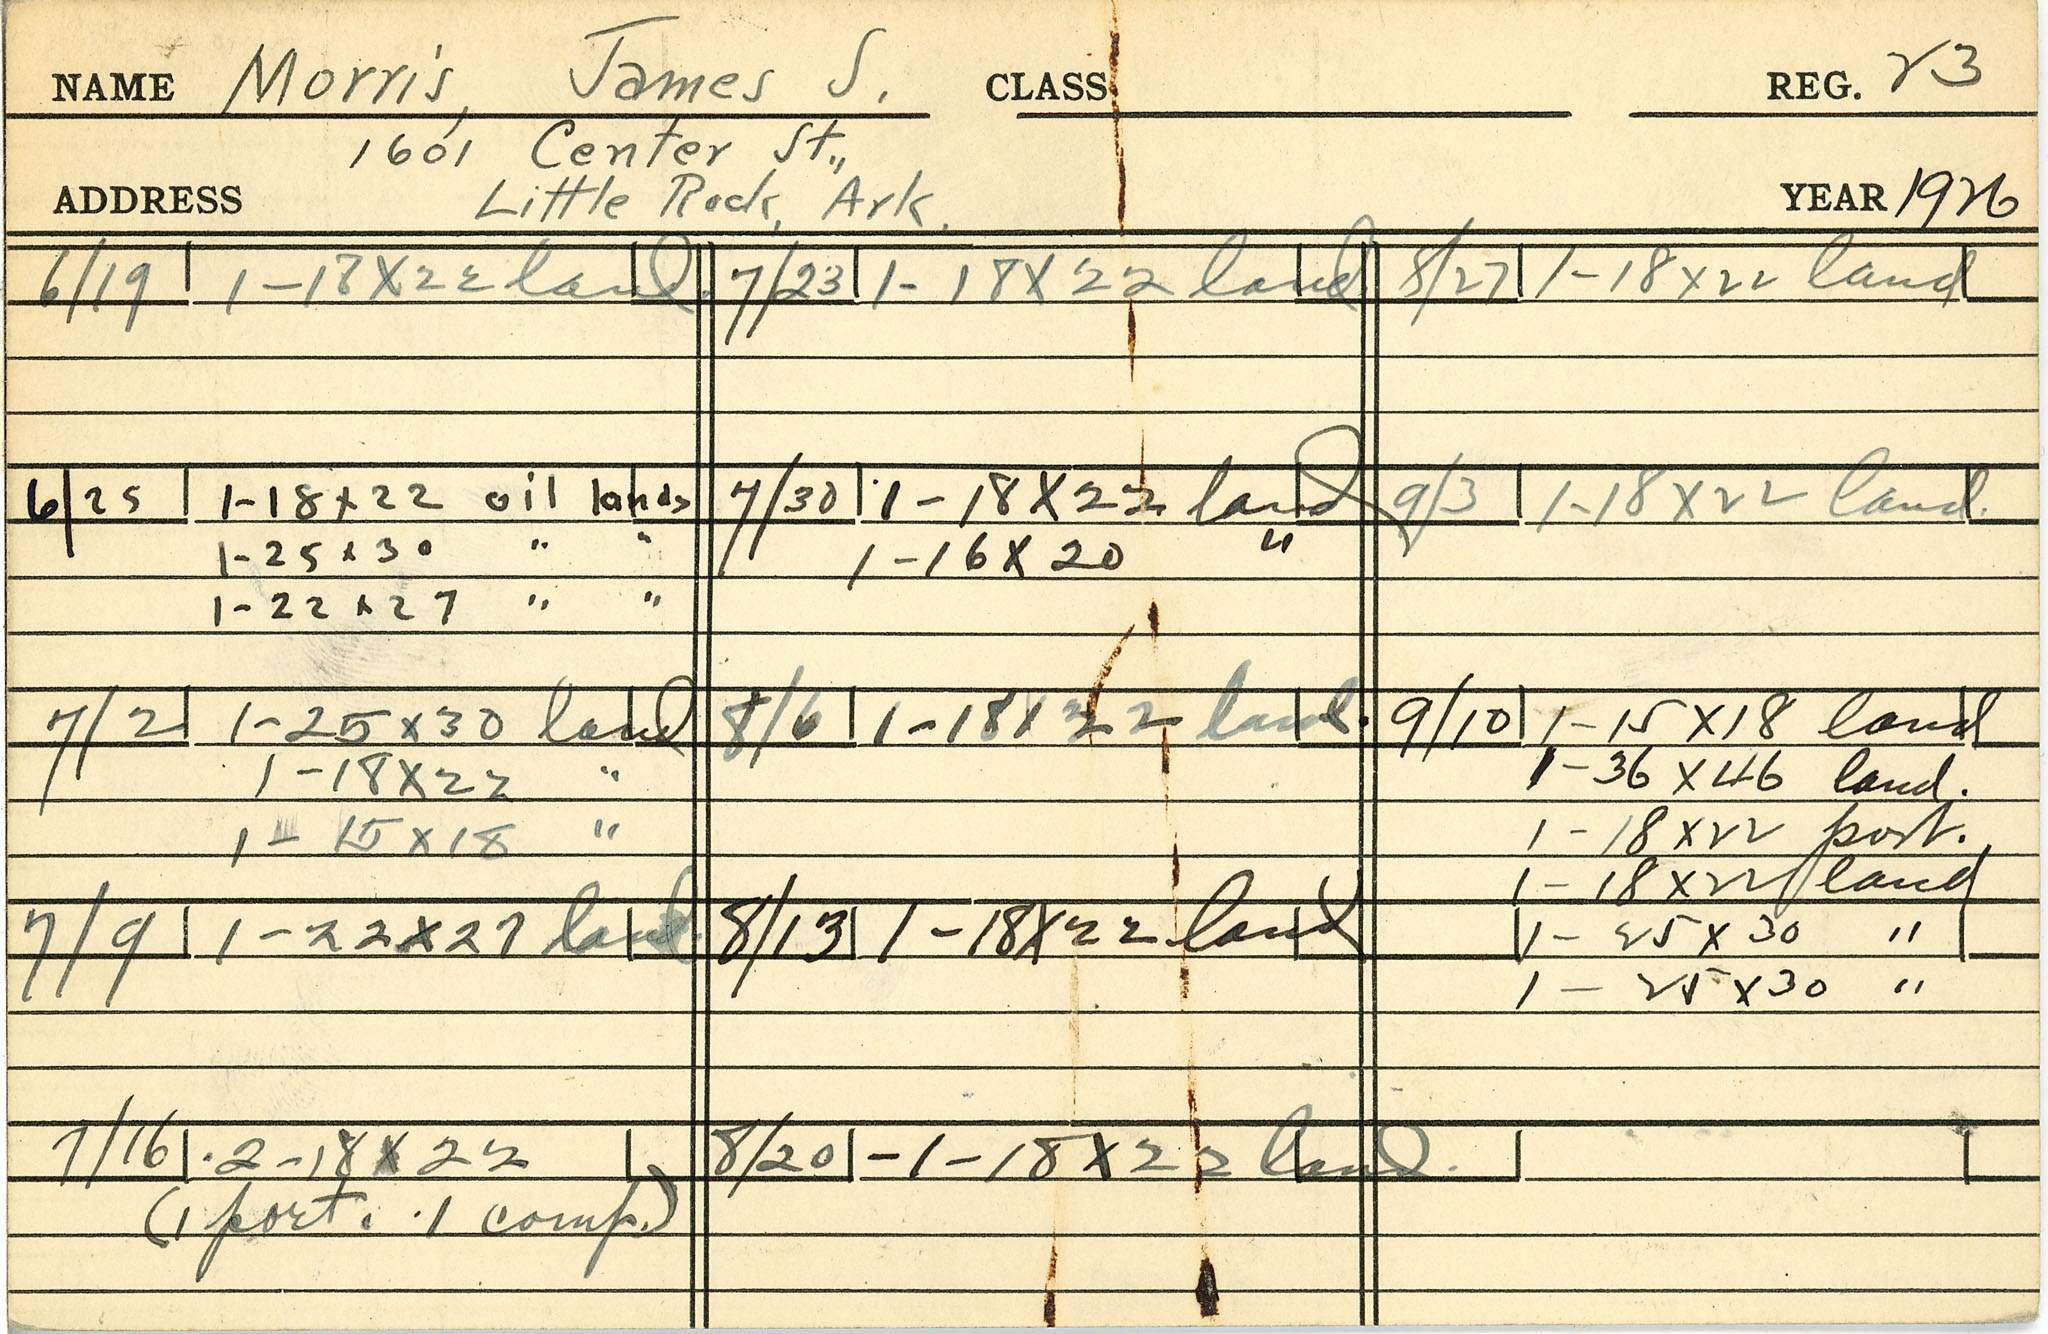 NAME Morris, James S. CLASS REG. 23
1601 Center St.,
ADDRESS Little Rock, Ark. YEAR 1926
6/19 1-18x22 land.
6/25 1-18x22 oil lands
1-25x30 " "
1-22x27 " "
7/2 1-25x30 land
1-18x22 "
1-15x18 "
7/9 1-22x27 land.
7/16 2-18x22
(1 port. 1 comp.)
7/23 1-18x22 land.
7/30 1-18x22 land
1-16x20 "
8/6 1-18x22 land.
8/13 1-18x22 land
8/20 -1-18x22 land.
8/27 1-18x22 land
9/3 1-18x22 land.
9/10 1-15x18 land
1-36x46 land.
1-18x22 port.
1-18x22 land
1-25x30 "
1-25x30 "